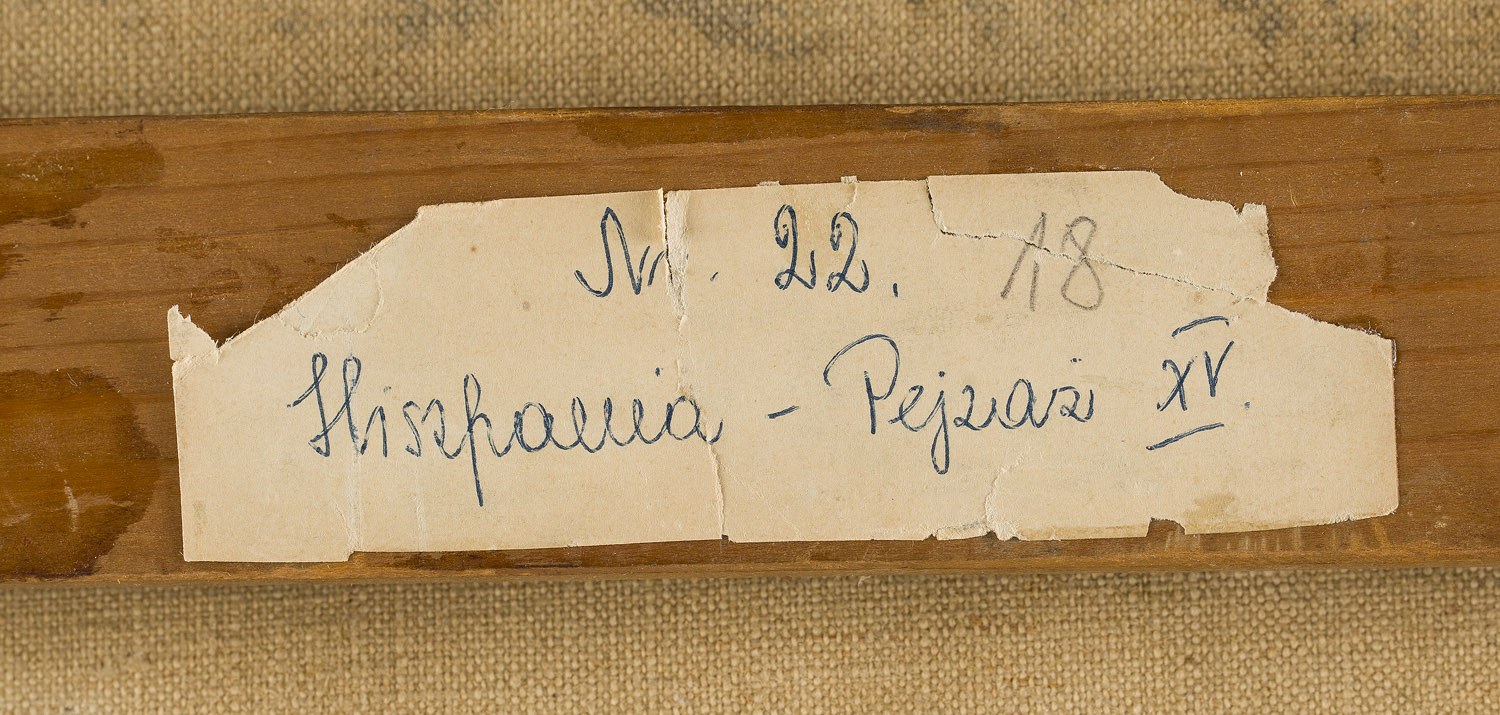 Nr. 22. 18
Hiszpania - Pejzaż XV.